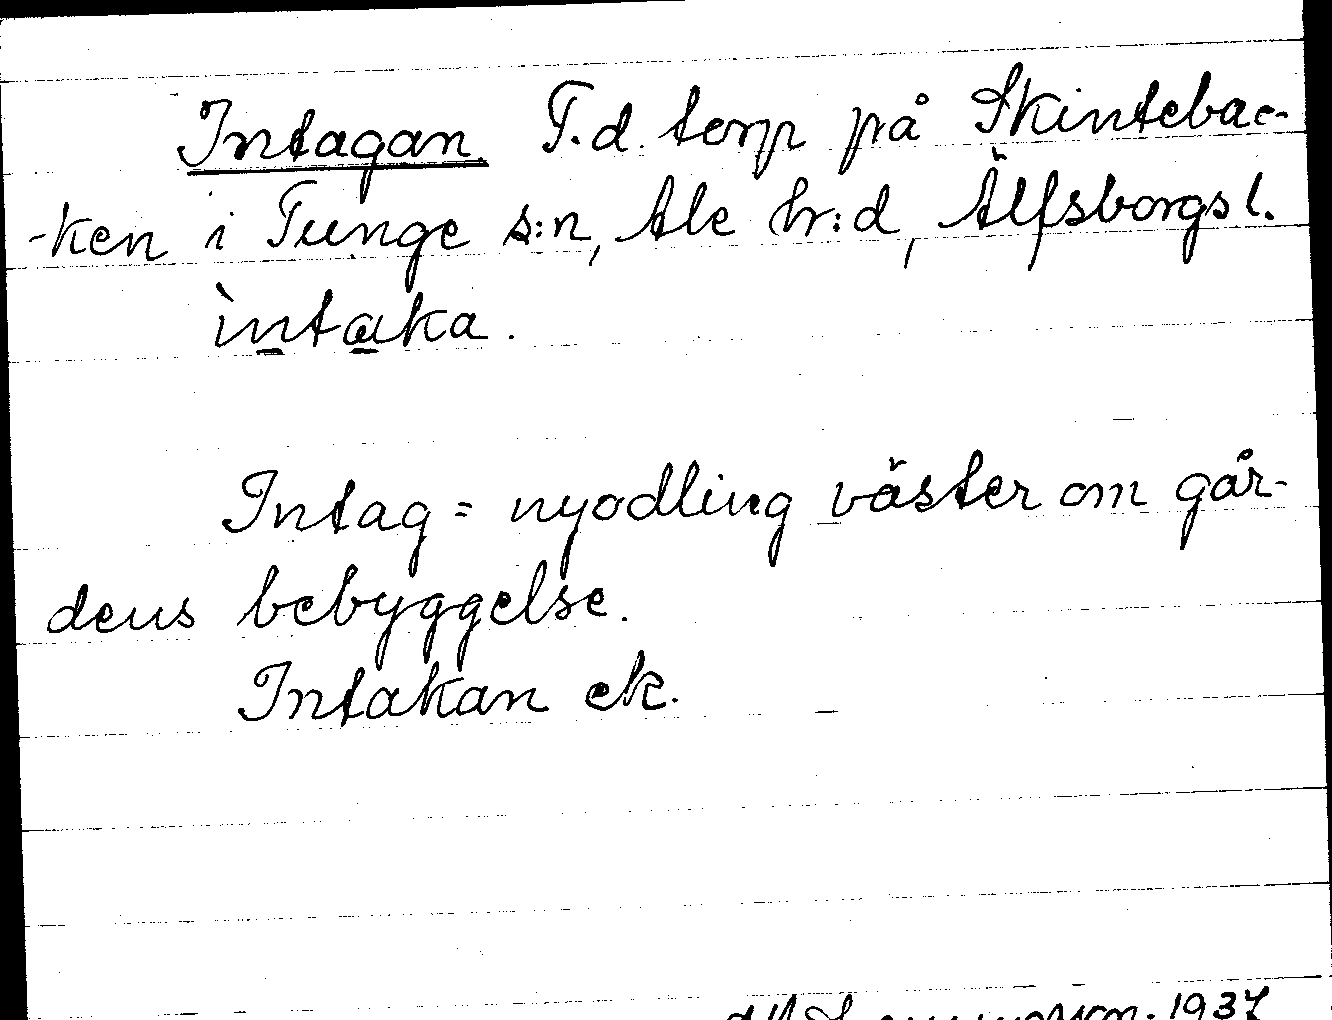 Intagan. F.d. torp på Skintebac-
-ken i Tunge s:n, Ale hr:d, Älfsborgs l.
ìntaka.
Intag = nyodling väster om går-
dens bebyggelse.
Intakan ek.
1937